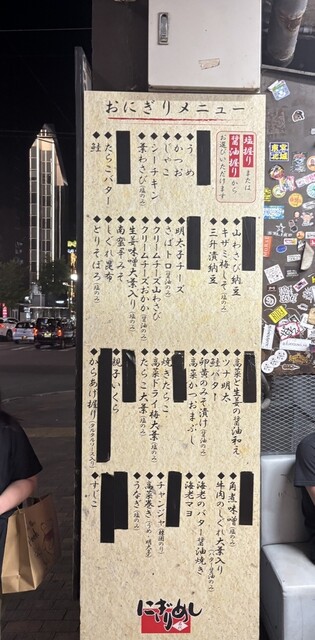 おにぎりメニュー
塩握りまたは
醤油握りから
お選びいただけます
◆うめ
◆かつお
◆じゃこ
◆シーチキン
◆葉わさび(塩のみ)
◆たらこバター
◆鮭
◆山わさび納豆
◆キザミ梅(塩のみ)
◆三升漬納豆
◆明太子チーズ
◆さばトロ(醤油のみ)
◆クリームチーズわさび
◆クリームチーズおかか(醤油のみ)
◆生姜味噌大葉入り(塩のみ)
◆南蛮みそ(塩のみ)
◆しぐれ昆布
◆とりそぼろ(塩のみ)
◆高菜と生姜の醤油和え
◆ツナ明太
◆鮭バター
◆卵黄のみそ漬け(醤油のみ)
◆高菜かつおまぶし
◆焼きたらこ
◆高菜ドライ梅大葉(塩のみ)
◆たらこ大葉(塩のみ)
◆親子いくら
◆からあげ握り(タルタルソース入り)
◆角煮味噌(塩のみ)
◆牛肉のしぐれ大葉入り
◆海老のバター醤油焼き(バター醤油のみ)
◆海老マヨ
◆チャンジャ(韓国のり)
◆高菜巻き(うめ・明太子)
◆うなぎ(塩のみ)
◆すじこ
にぎりめし